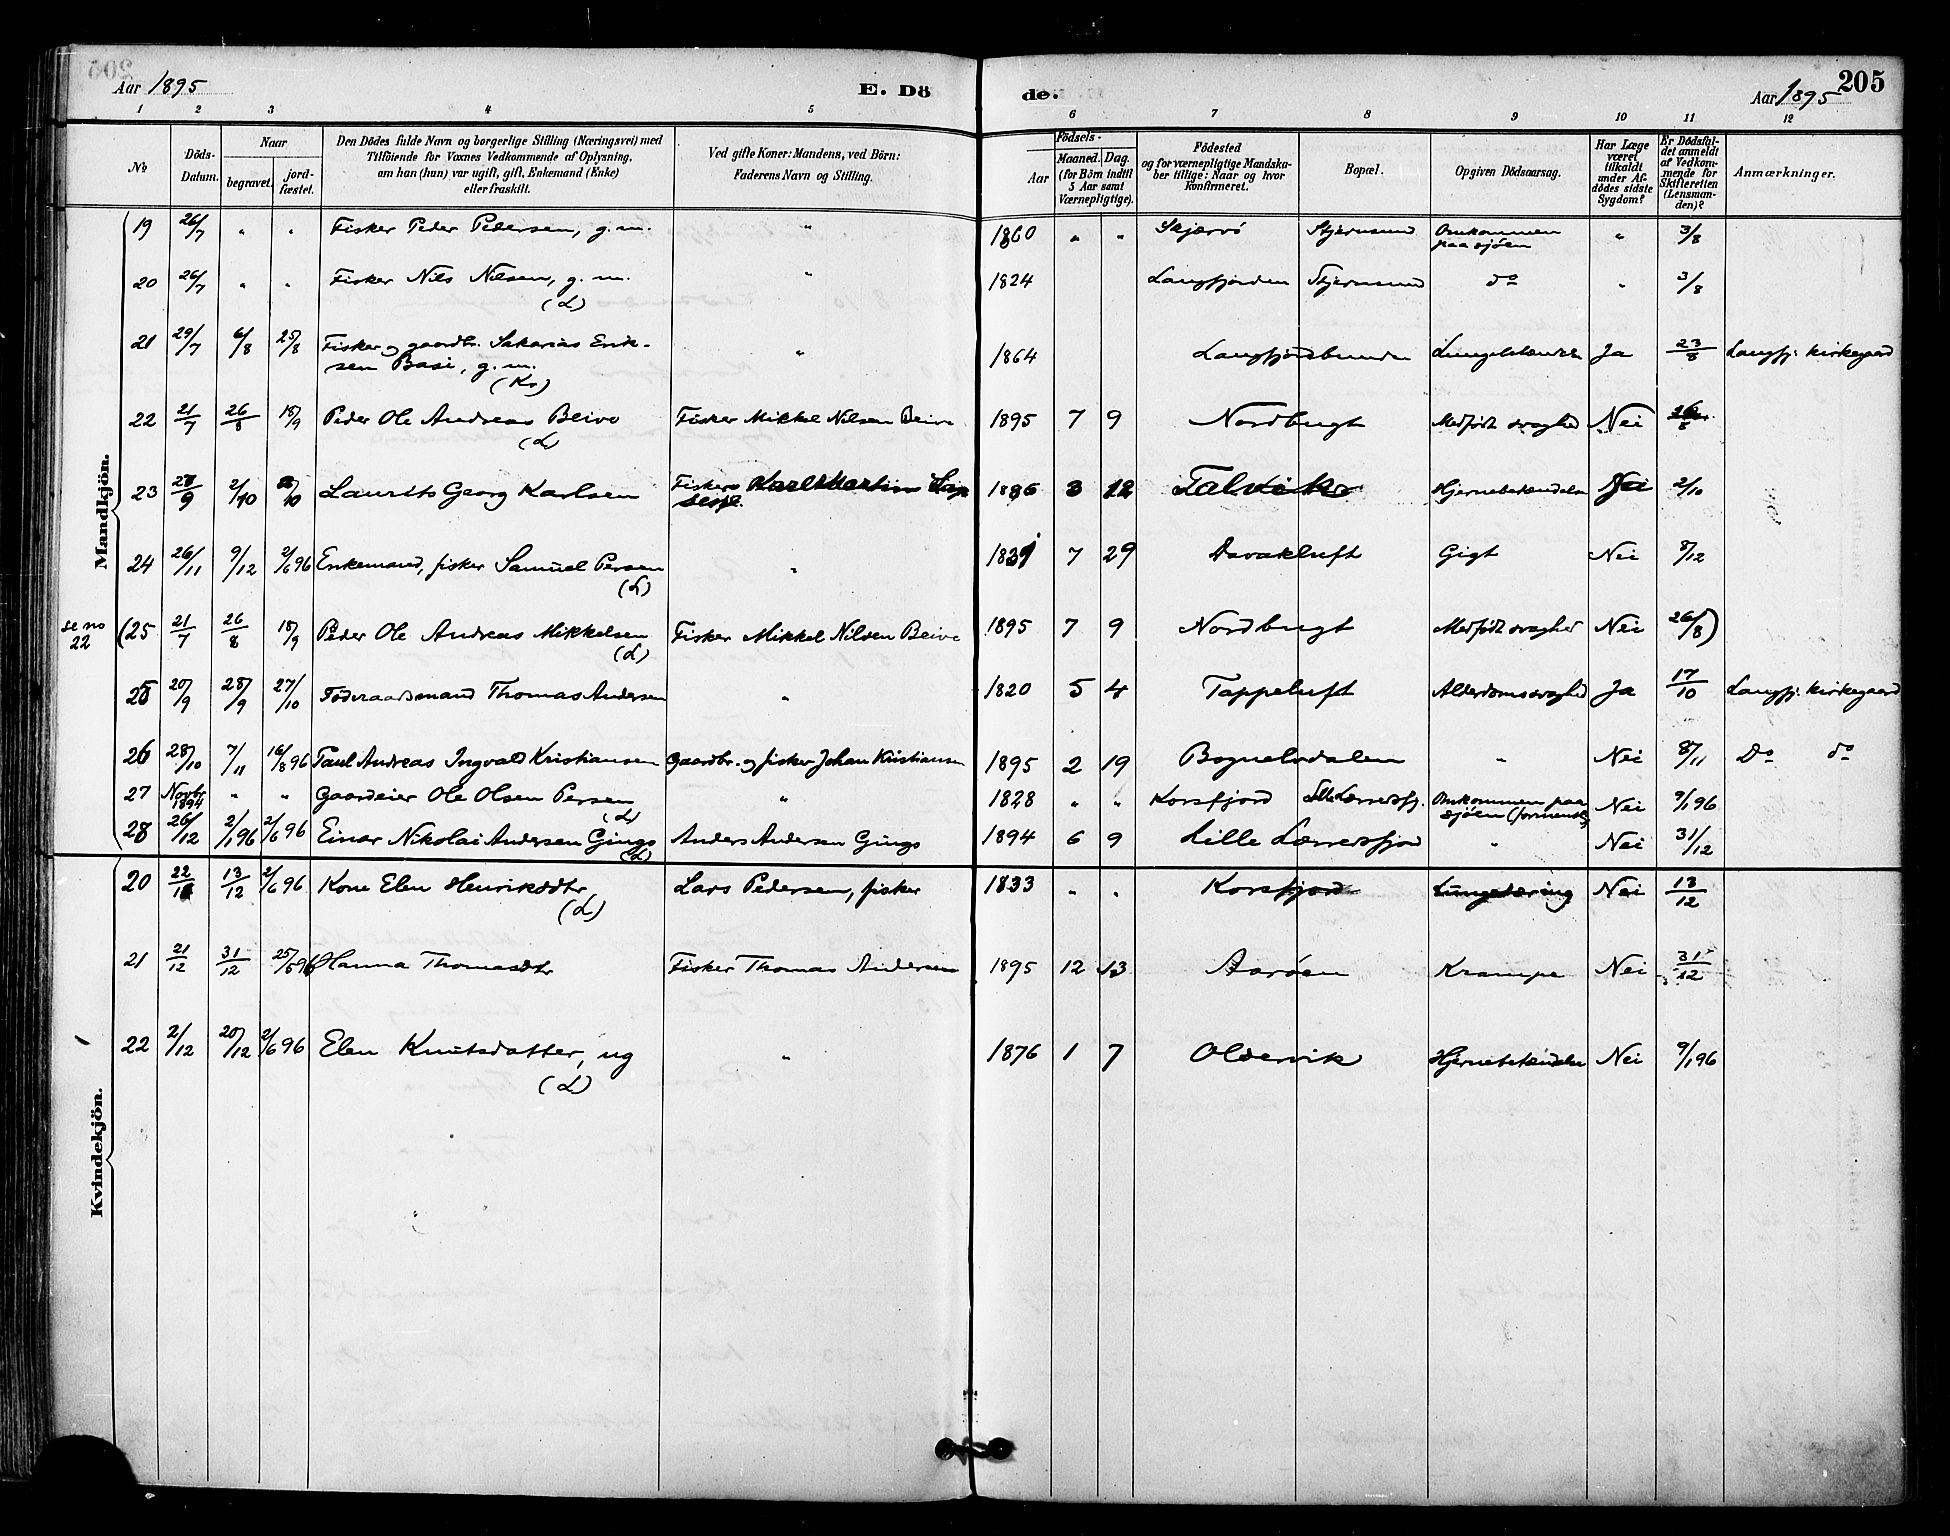 Aar 1895 E. Dö de. Aar 1895 205
1 2 3 4 5 6 7 8 9 10 11 12
No
Döds-Datum.
Naar
begravet.
jordfæstet.
Den Dödes fulde Navn og borgerlige Stilling (Næringsvei) med
Tilföiende for Voxnes Vedkommende af Oplysning,
om han (hun) var ugift, gift, Enkemand (Enke)
eller fraskilt.
Ved gifte Koner: Mandens, ved Börn:
Faderens Navn og Stilling.
Födsels-
Aar
Maaned. Dag.
(for Börn indtil
5 Aar samt
Værnepligtige).
Födested
og for værnepligtige Mandska-
ber tillige: Naar og hvor
konfirmeret.
Bopæl.
Opgiven Dödsaarsag.
Har Læge
været
tilkaldt
under Af-
dödes sidste
Sygdom?
Er Dödsfal-
det anmeldt
af Vedkom-
mende for
Skifteretten
(Lensman-
den)?
Anmærkninger.
Mandkjön.
19 26/7 " " Fisker Peder Pedersen, g.m. " 1860 " " Skjærvö Stjernsund Omkommen paa sjöen " 3/8
20 26/7 " " Fisker Nils Nilsen, g.m. (L) " 1824 Langfjorden Stjernsund do " 3/8
21 29/7 6/8 25/8 Fisker og gaardbr. Sakarias Erik-
sen Basi, g.m. (Kv) " 1864 Langfjordbunden Lungebetændelse Ja 23/8 Langfj. kirkegaard
22 21/7 26/8 18/9 Peder Ole Andreas Beivo (L) Fisker Mikkel Nilsen Beivo 1895 7 9 Nordbugt Medfödt svaghed Nei 26/8
23 27/9 2/10 /10 Laurits Georg Karlsen Fisker Karl Martin 1886 3 12 Talvik Hjernebetændelse 2/10
24 26/11 9/12 2/6 96 Enkemand, fisker Samuel Persen (L) " 7 29 Davakluft Gigt Nei 8/12
se no 22 (25 21/7 26/8 18/9 Peder Ole Andreas Mikkelsen (L) Fisker Mikkel Nilsen Beivo 1895 7 9 Nordbugt Medfödt svaghed Nei 26/8)
25 20/9 28/9 27/10 Föderaadsmand Thomas Andersen " 1820 5 4 Tappeluft Alderdomssvaghed Ja 17/10 Langfj. kirkegaard
26 28/10 7/11 16/8 96 Paul Andreas Ingvald Kristiansen Gaardbr. og fisker Johan Kristiansen 1895 2 19 Bognelvdalen " Nei 8/11 Do do
27 Novbr 1894 " " Gaardeier Ole Olsen Persen (L) " 1828 " " Korsfjord Lille Lærredsfj. Omkommen paa sjöen (formentlig) Nei 9/1 96
28 26/12 2/1 96 2/6 96 Einar Nikolai Andersen Gings (L) Anders Andersen Gings 1894 6 9 Lille Lærredsfjord " Nei 31/12
Kvindekjön.
20 22/11 13/12 2/6 96 Kone Elen Henriksdtr (L) Lars Pedersen, fisker 1833 " " Korsfjord Lungetæring Nei 13/12
21 21/12 31/12 25/5 96 Hanna Thomasdtr Fisker Thomas Andersen 1895 12 13 Aaröen Krampe Nei 31/12
22 2/12 20/12 2/6 96 Elen Knutsdatter, ug (L) " 1876 1 7 Oldervik Hjernebetændelse Nei 9/1 96